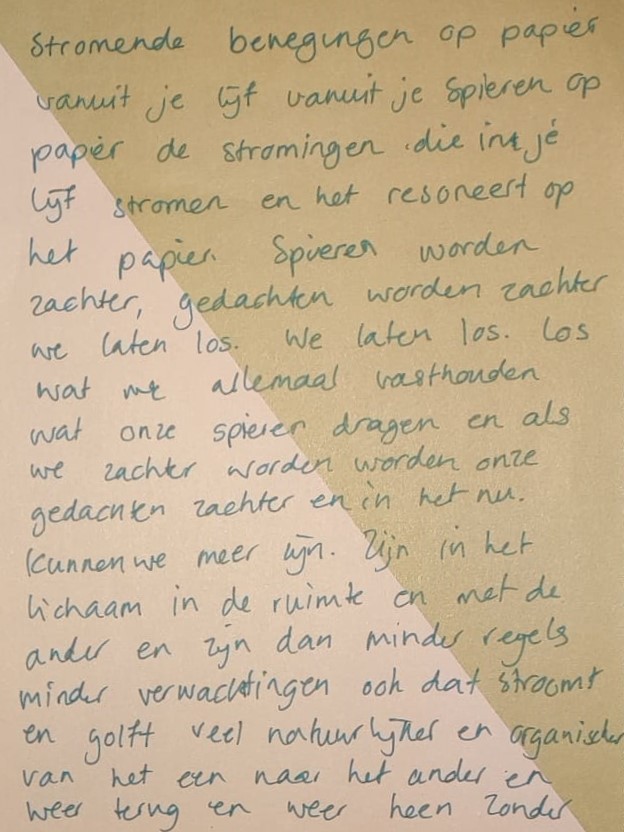 Stromende bewegingen op papier
vanuit je lijf vanuit je spieren op
papier de stromingen die in je
lijf stromen en het resoneert op
het papier. Spieren worden
zachter, gedachten worden zachter
we laten los. We laten los. Los
wat we allemaal vasthouden
wat onze spieren dragen en als
we zachter worden worden onze
gedachten zachter en in het nu.
Kunnen we meer zijn. Zijn in het
lichaam in de ruimte en met de
ander en zijn dan minder regels
minder verwachtingen ook dat stroomt
en golft veel natuurlijker en organischer
van het een naar het ander en
weer terug en weer heen zonder